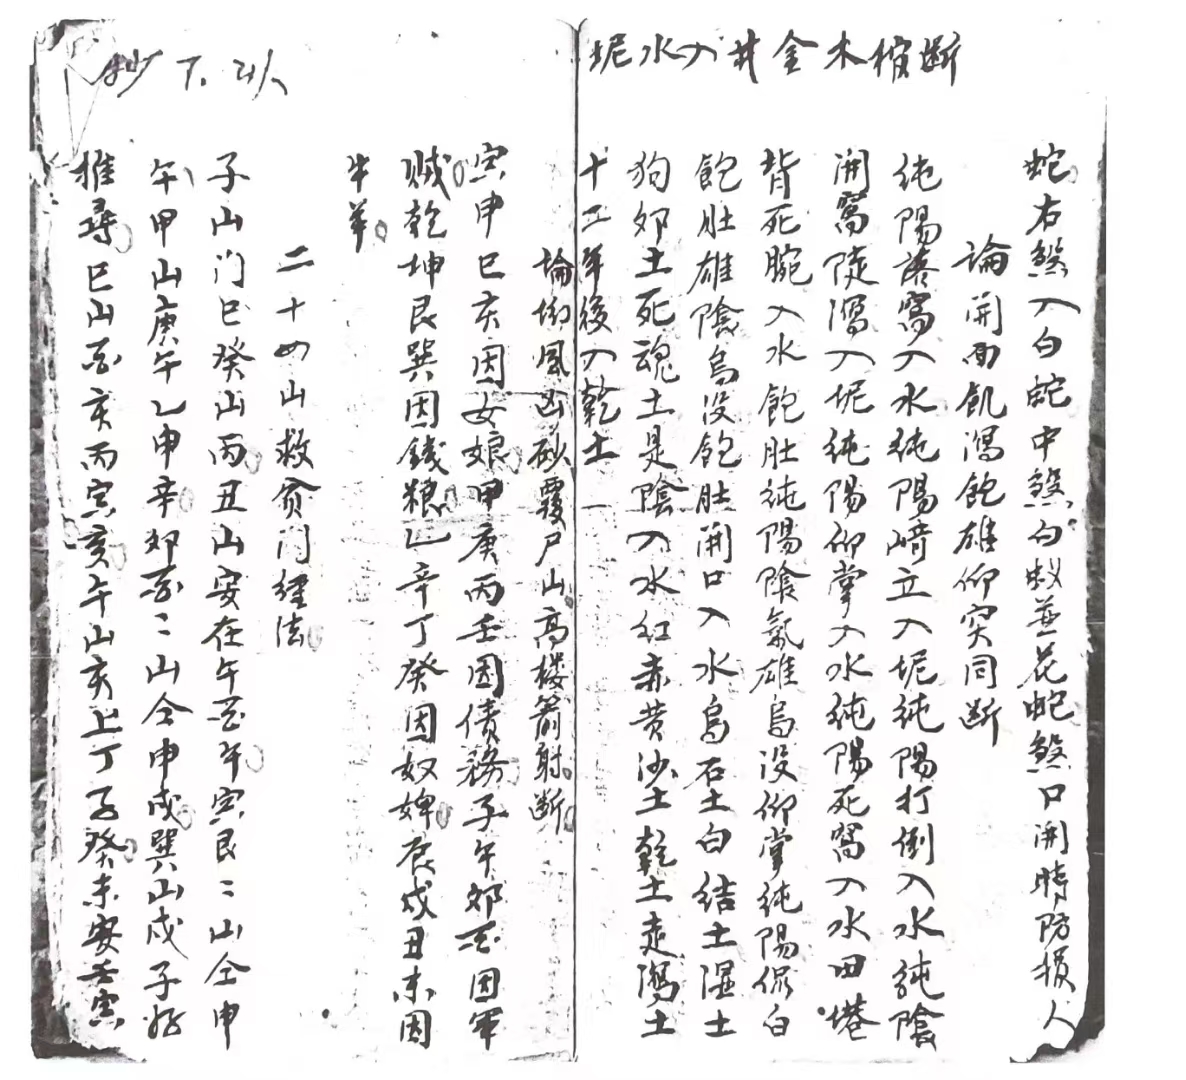 坭水入井金木棺斷
蛇右煞入白蛇中煞白蚁並花蛇煞口開睛防損人
論開面飢渴飽雄仰突同斷
純陽落窩入水純陽崎立入坭純陽打倒入水純陰
開窩陡瀉入坭純陽仰掌入水純陽死窩入水田塆
背死腕入水飽肚純陽陰氣雄烏没仰掌純陽侃白
飽肚雄陰烏没飽肚開口入水烏石土白結土濕土
狗卯土死魂土是陰入水红赤黄沙土乾土走瀉土
十二年後入乾土
論坳風凶砂覆尸山高楼箭射断
寅申巳亥因女娘甲庚丙壬因債務子午卯酉因軍
贼乾坤艮巽因錢粮乙辛丁癸因奴婢辰戌丑未因
牛羊
二十四山救贫门經法
子山门巳癸山丙丑山安在午酉午寅艮二山仝申
午甲山庚午乙申辛卯酉二山仝申戌巽山戌子好
推尋巳山酉亥丙寅亥午山亥上丁子癸未安壬寅
抄下以